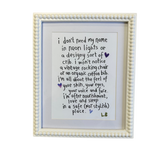 i don't need my name
in neon lights or
a designy sort of
sofa. i won't notice
a vintage rocking chair
at an organic coffee bar.
i'm all about the feel of
your skin, your eyes,
your voice and face.
i'm after nourishment,
love and sleep
in a safe (not stylish)
place.